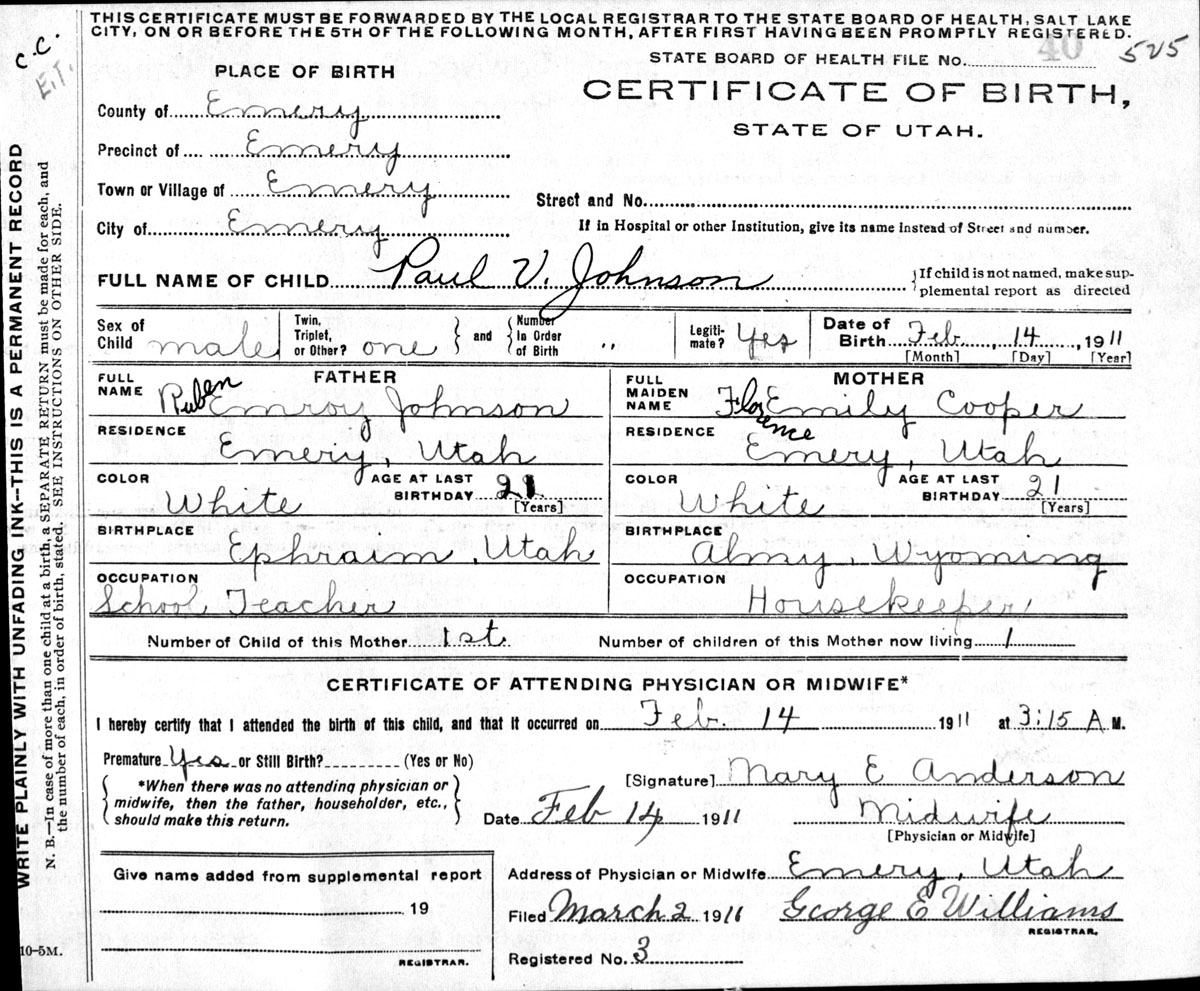 THIS CERTIFICATE MUST BE FORWARDED BY THE LOCAL REGISTRAR TO THE STATE BOARD OF HEALTH, SALT LAKE
CITY, ON OR BEFORE THE 5TH OF THE FOLLOWING MONTH, AFTER FIRST HAVING BEEN PROMPTLY REGISTERED.
C.C.
E.T.
WRITE PLAINLY WITH UNFADING INK--THIS IS A PERMANENT RECORD
N. B.—In case of more than one child at a birth, a SEPARATE RETURN must be made for each, and
the number of each, in order of birth, stated. SEE INSTRUCTIONS ON OTHER SIDE.
10-5M.
STATE BOARD OF HEALTH FILE No. 40 525
CERTIFICATE OF BIRTH,
STATE OF UTAH.
PLACE OF BIRTH
County of Emery
Precinct of Emery
Town or Village of Emery
Street and No.
City of Emery
If in Hospital or other Institution, give its name instead of Street and number.
FULL NAME OF CHILD Paul V. Johnson
{If child is not named, make sup-
plemental report as directed
Sex of Child male
Twin, Triplet, or Other? one } and { Number In Order of Birth "
Legiti-mate? Yes
Date of Birth Feb. 14, 1911
[Month] [Day] [Year]
FATHER
FULL NAME Ruben Emroy Johnson
RESIDENCE Emery, Utah
COLOR White
AGE AT LAST BIRTHDAY 21
[Years]
BIRTHPLACE Ephraim, Utah
OCCUPATION School Teacher
MOTHER
FULL MAIDEN NAME Florence Emily Cooper
RESIDENCE Emery, Utah
COLOR White
AGE AT LAST BIRTHDAY 21
[Years]
BIRTHPLACE Almy, Wyoming
OCCUPATION Housekeeper
Number of Child of this Mother 1st
Number of children of this Mother now living 1
CERTIFICATE OF ATTENDING PHYSICIAN OR MIDWIFE*
I hereby certify that I attended the birth of this child, and that it occurred on Feb. 14 1911 at 3:15 A.M.
Premature Yes or Still Birth? (Yes or No)
*When there was no attending physician or
midwife, then the father, householder, etc.,
should make this return.
[Signature] Mary E Anderson
Date Feb 14 1911
Midwife
[Physician or Midwife]
Give name added from supplemental report
19
REGISTRAR.
Address of Physician or Midwife Emery, Utah
Filed March 2 1911 George E Williams
REGISTRAR.
Registered No. 3